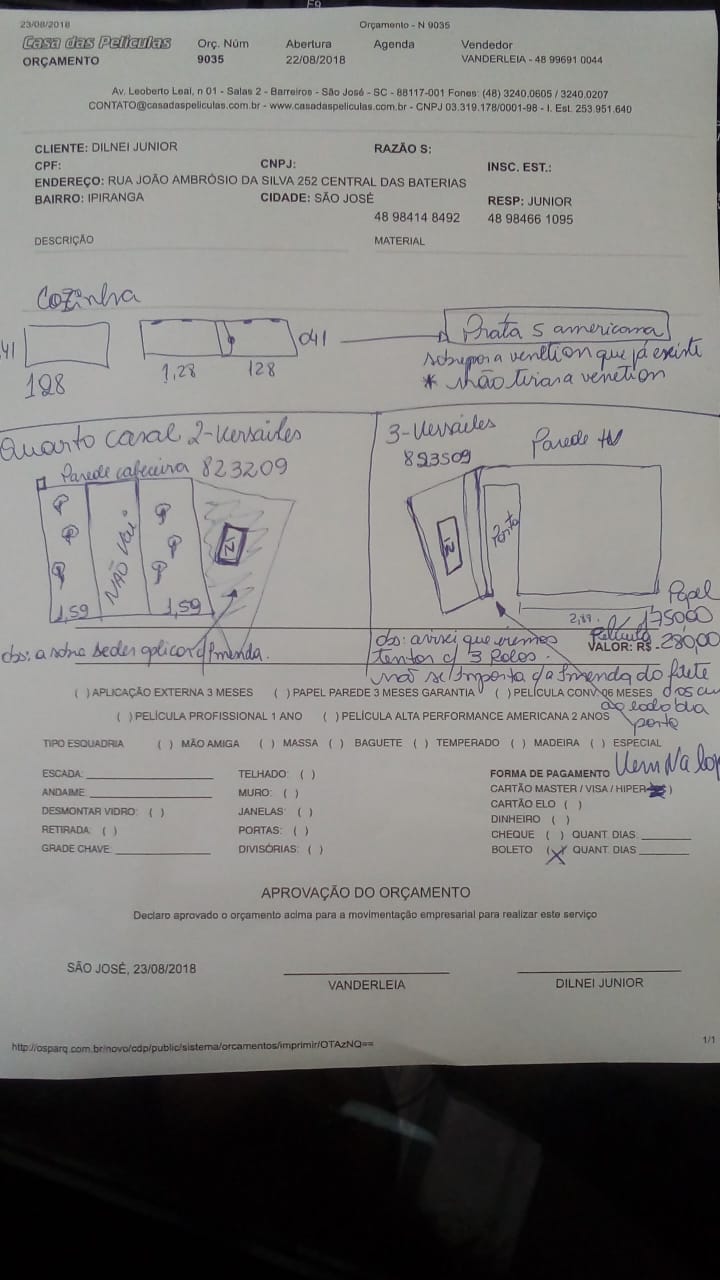 23/08/2018 Orçamento - N 9035
Casa das Películas Orç. Núm Abertura Agenda Vendedor
ORÇAMENTO 9035 22/08/2018 VANDERLEIA - 48 99691 0044
Av. Leoberto Leal, n 01 - Salas 2 - Barreiros - São José - SC - 88117-001 Fones: (48) 3240.0605 / 3240.0207
CONTATO@casadaspeliculas.com.br - www.casadaspeliculas.com.br - CNPJ 03.319.178/0001-98 - I. Est. 253.951.640
CLIENTE: DILNEI JUNIOR RAZÃO S:
CPF: CNPJ: INSC. EST.:
ENDEREÇO: RUA JOÃO AMBRÓSIO DA SILVA 252 CENTRAL DAS BATERIAS
BAIRRO: IPIRANGA CIDADE: SÃO JOSÉ RESP: JUNIOR
48 98414 8492 48 98466 1095
DESCRIÇÃO MATERIAL
Cozinha
41 041 Prata 5 americana
128 1,28 128 sobrepor a venetion que já existe
* não tirar a venetion
Quarto casal 2-Versailes
Parede cabeceira 823209
NÃO Vai
1,59 1,59
obs: a sobra se der aplicar c/ emenda.
3-Versailes
893509
Parede tv
Porta
2,89
Papel
1750,00
Película
VALOR: R$ 280,00
obs: avisei que iremos
tentar c/ 3 Rolos.
não se importa c/a Emenda do filete
ao lado da
porta
( ) APLICAÇÃO EXTERNA 3 MESES ( ) PAPEL PAREDE 3 MESES GARANTIA ( ) PELÍCULA CONV. 06 MESES
( ) PELÍCULA PROFISSIONAL 1 ANO ( ) PELÍCULA ALTA PERFORMANCE AMERICANA 2 ANOS
TIPO ESQUADRIA ( ) MÃO AMIGA ( ) MASSA ( ) BAGUETE ( ) TEMPERADO ( ) MADEIRA ( ) ESPECIAL
Vem Na loja
ESCADA: TELHADO: ( ) FORMA DE PAGAMENTO
ANDAIME: MURO: ( ) CARTÃO MASTER / VISA / HIPER ( )
DESMONTAR VIDRO: ( ) JANELAS: ( ) CARTÃO ELO ( )
RETIRADA: ( ) PORTAS: ( ) DINHEIRO ( )
GRADE CHAVE: DIVISÓRIAS: ( ) CHEQUE ( ) QUANT. DIAS
BOLETO (X) QUANT. DIAS
APROVAÇÃO DO ORÇAMENTO
Declaro aprovado o orçamento acima para a movimentação empresarial para realizar este serviço
SÃO JOSÉ, 23/08/2018
VANDERLEIA DILNEI JUNIOR
http://osparq.com.br/novo/cdp/public/sistema/orcamentos/imprimir/OTAzNQ== 1/1